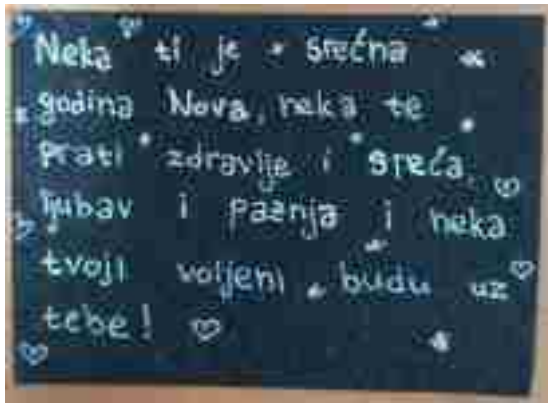 Neka ti je srećna
godina Nova, neka te
prati zdravlje i sreća,
ljubav i pažnja i neka
tvoji voljeni budu uz
tebe!